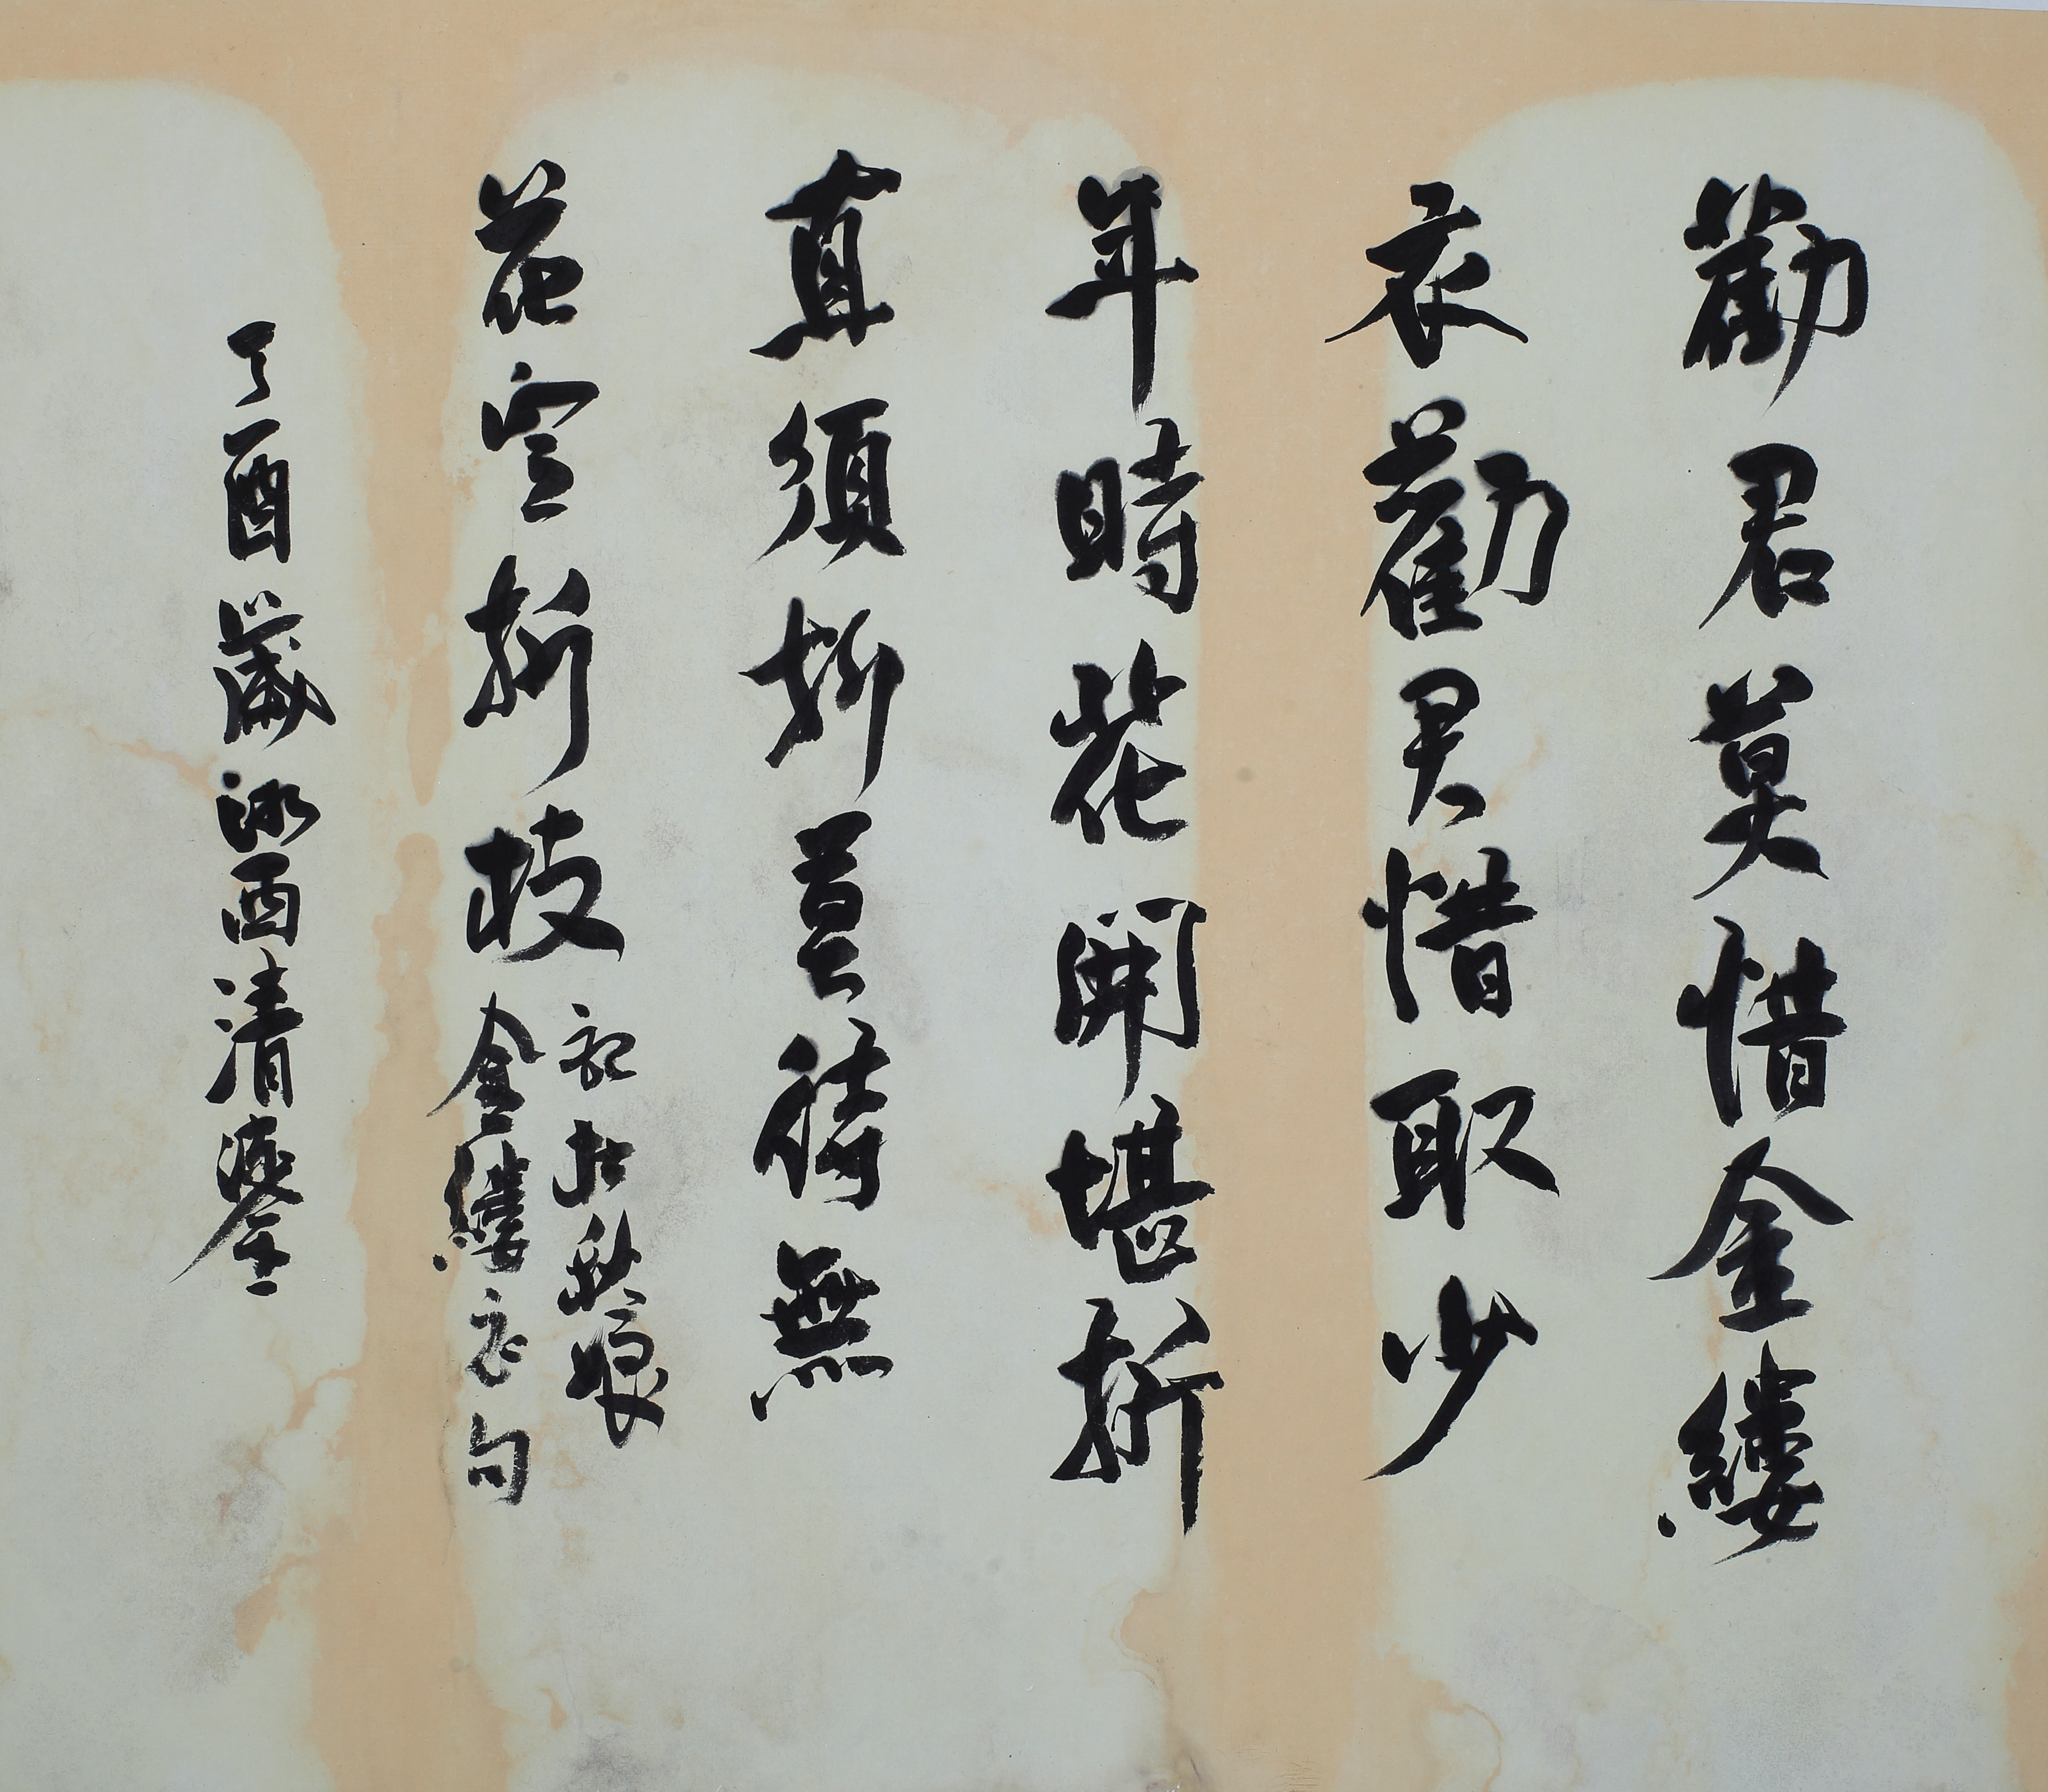 勸君莫惜金縷
衣勸君惜取少
年時花開堪折
直須折莫待無
花空折枝
記杜秋娘
金縷衣句
丁酉歲 西清